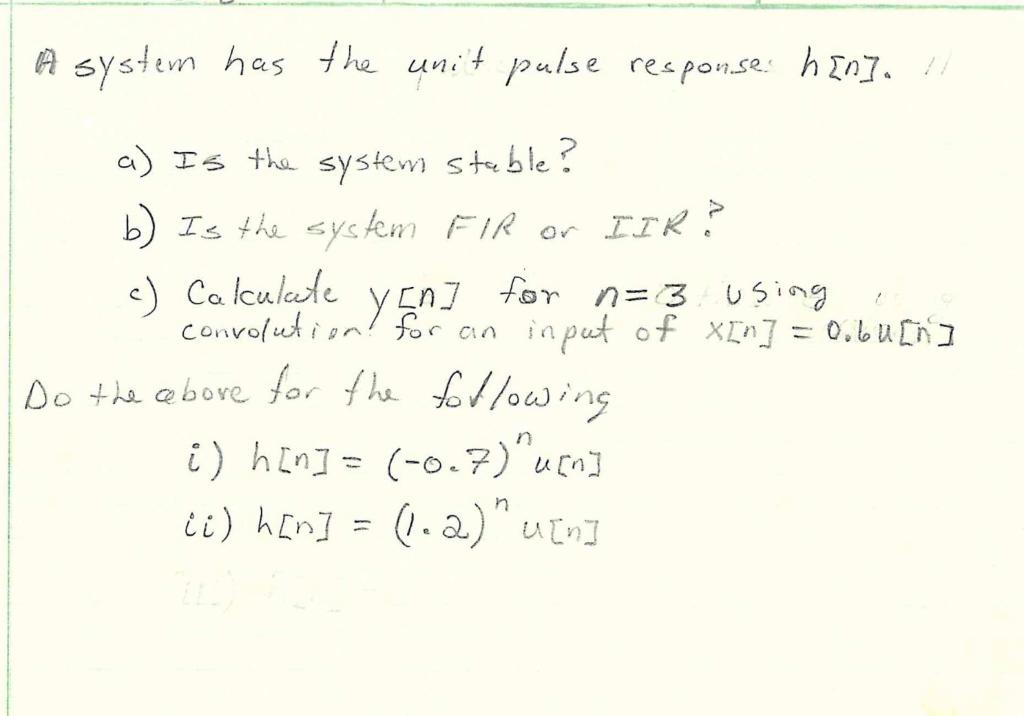 A system has the unit pulse response h[n].
a) Is the system stable?
b) Is the system FIR or IIR?
c) Calculate y[n] for n=3 using
convolution for an input of x[n] = 0.6u[n]
Do the above for the following
i) h[n] = (-0.7)ⁿu[n]
ii) h[n] = (1.2)ⁿ u[n]